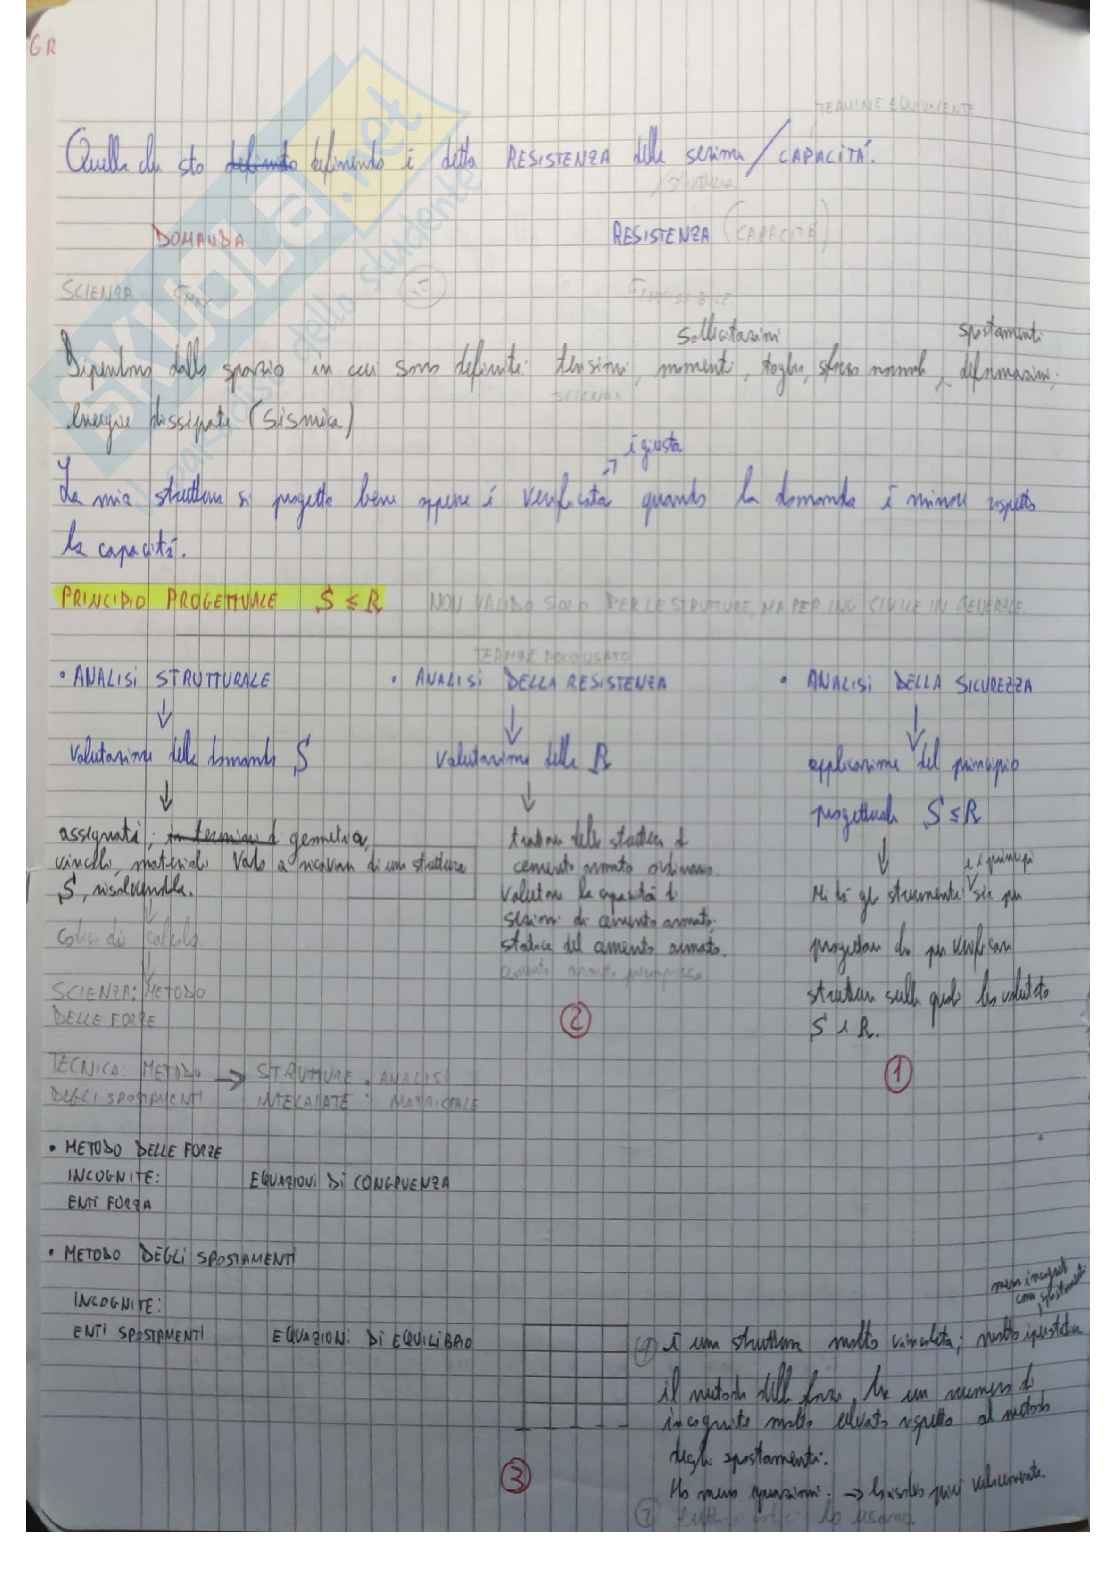 GR
TERMINE EQUIVALENTE
Quella che sto definendo definendo è detta RESISTENZA della sezione / CAPACITÀ.
DOMANDA RESISTENZA (CAPACITÀ)
SCIENZA
sollicitazioni spostamenti
Dipendono dallo spazio in cui sono definite: tensioni, momenti, taglio, sforzo normale, deformazioni,
SCIENZA
energie dissipate (sismica)
è giusta
La mia struttura si progetta bene oppure è verificata quando la domanda è minore rispetto
la capacità.
PRINCIPIO PROGETTUALE S ≤ R NON VALIDO SOLO PER LE STRUTTURE, MA PER ING CIVILE IN GENERALE
TERMINE POCO USATO
• ANALISI STRUTTURALE • ANALISI DELLA RESISTENZA • ANALISI DELLA SICUREZZA
↓ ↓ ↓
Valutazione della domanda S valutazione della R applicazione del principio
progettuale S ≤ R
↓ ↓ ↓
assegnata; in termini di geometria,
vincoli, materiali vado a ricavare di una struttura
S, risolvendola.
codici di calcolo
SCIENZA: METODO
DELLE FORZE
TECNICA: METODO → STRUTTURE . ANALISI
DEGLI SPOSTAMENTI INTELAIATE : MATRICIALE
strutture di
cemento armato ordinario.
Valutare la capacità di
sezioni di cemento armato.
statica del cemento armato.
cemento armato precompresso
②
e i principi
Mi dà gli strumenti sia per
progettare che per verificare
strutture sulle quali ho valutato
S e R.
①
• METODO DELLE FORZE
INCOGNITE: EQUAZIONI DI CONGRUENZA
ENTI FORZA
• METODO DEGLI SPOSTAMENTI
INCOGNITE:
ENTI SPOSTAMENTI EQUAZIONI DI EQUILIBRIO
③
meno incognite
con spostamenti
① è una struttura molto vincolata; molto iperstatica
il metodo delle forze, ha un numero di
incognite molto elevato rispetto al metodo
degli spostamenti.
Ho meno equazioni. → più velocemente.
② lo usano
SKUOLA.net
dello studente